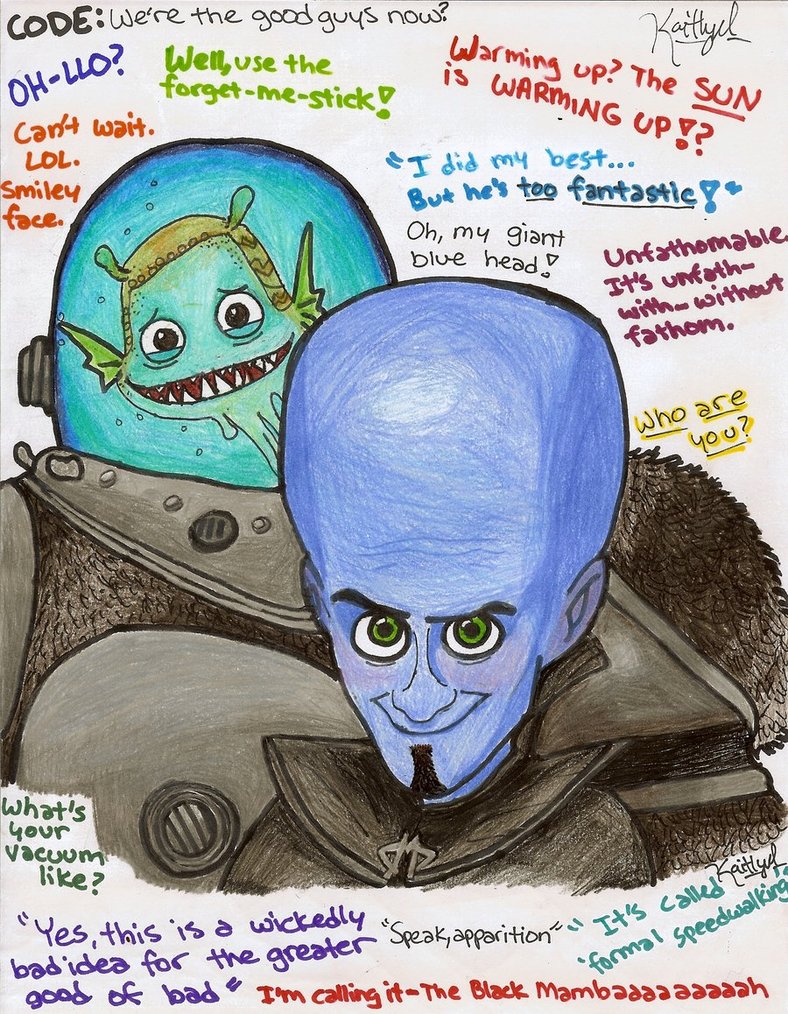 CODE: We're the good guys now?
Kaitlyn
OH-LLO?
Well, use the
forget-me-stick!
Warming up? The SUN
is WARMING UP!?
Can't wait.
LOL.
Smiley
face.
"I did my best...
But he's too fantastic!"
Oh, my giant
blue head!
Unfathomable.
It's unfath-
with-without
fathom.
Who are
you?
What's
your
vacuum
like?
Kaitlyn
"Yes, this is a wickedly
bad idea for the greater
good of bad"
"Speak, apparition"
"It's called
'formal speedwalking'
I'm calling it-The Black Mambaaaaaaaaah